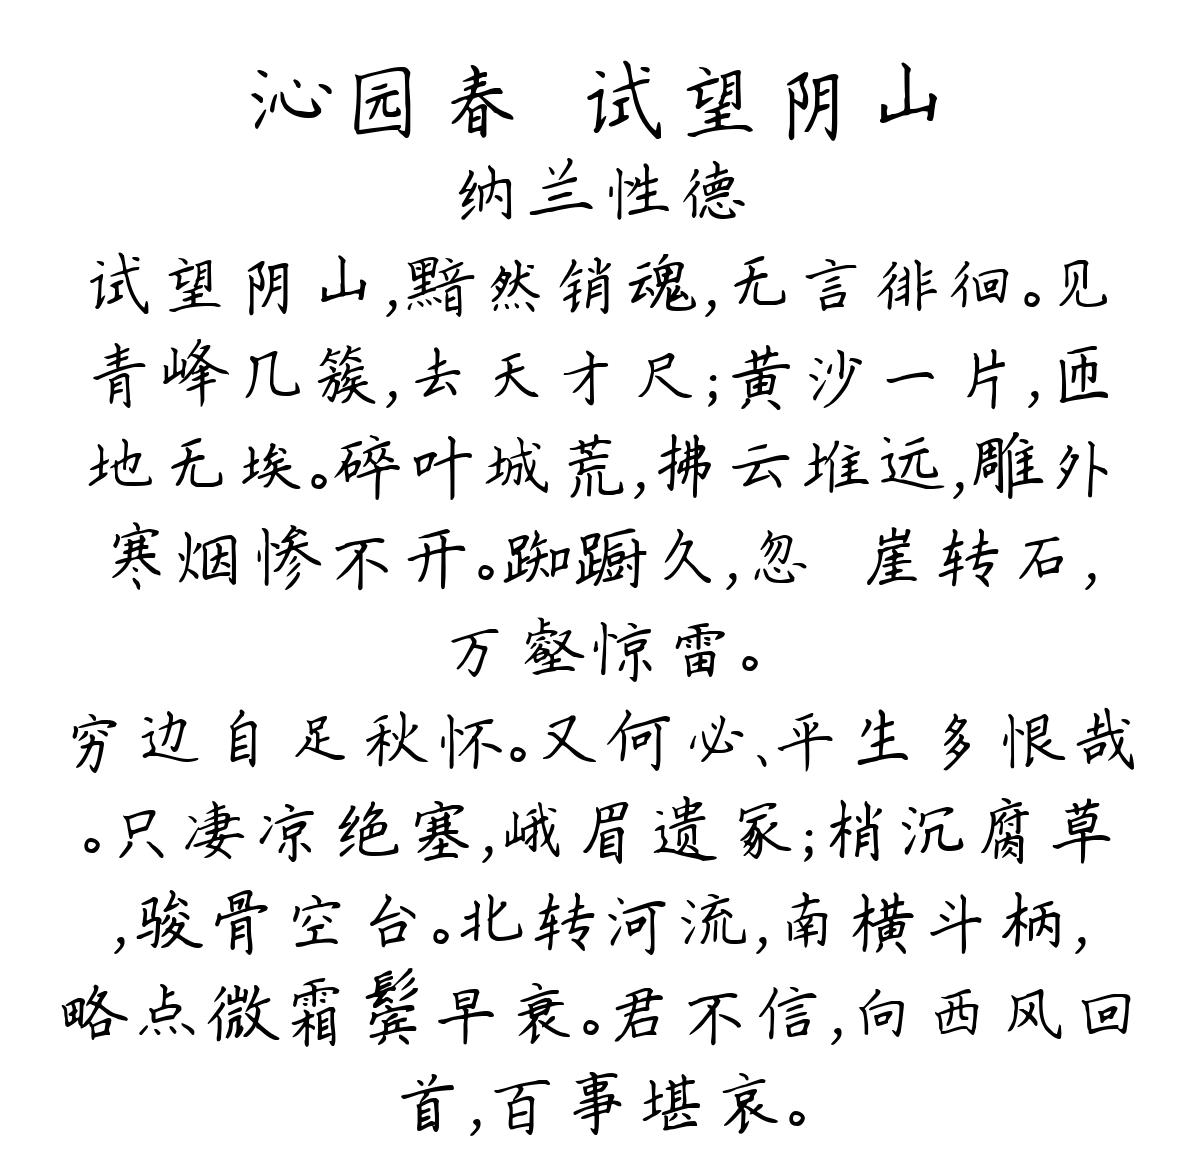 沁园春 试望阴山
纳兰性德
试望阴山,黯然销魂,无言徘徊。见
青峰几簇,去天才尺;黄沙一片,匝
地无埃。碎叶城荒,拂云堆远,雕外
寒烟惨不开。踟蹰久,忽 崖转石,
万壑惊雷。
穷边自足秋怀。又何必、平生多恨哉
。只凄凉绝塞,峨眉遗冢;梢沉腐草
,骏骨空台。北转河流,南横斗柄,
略点微霜鬓早衰。君不信,向西风回
首,百事堪哀。